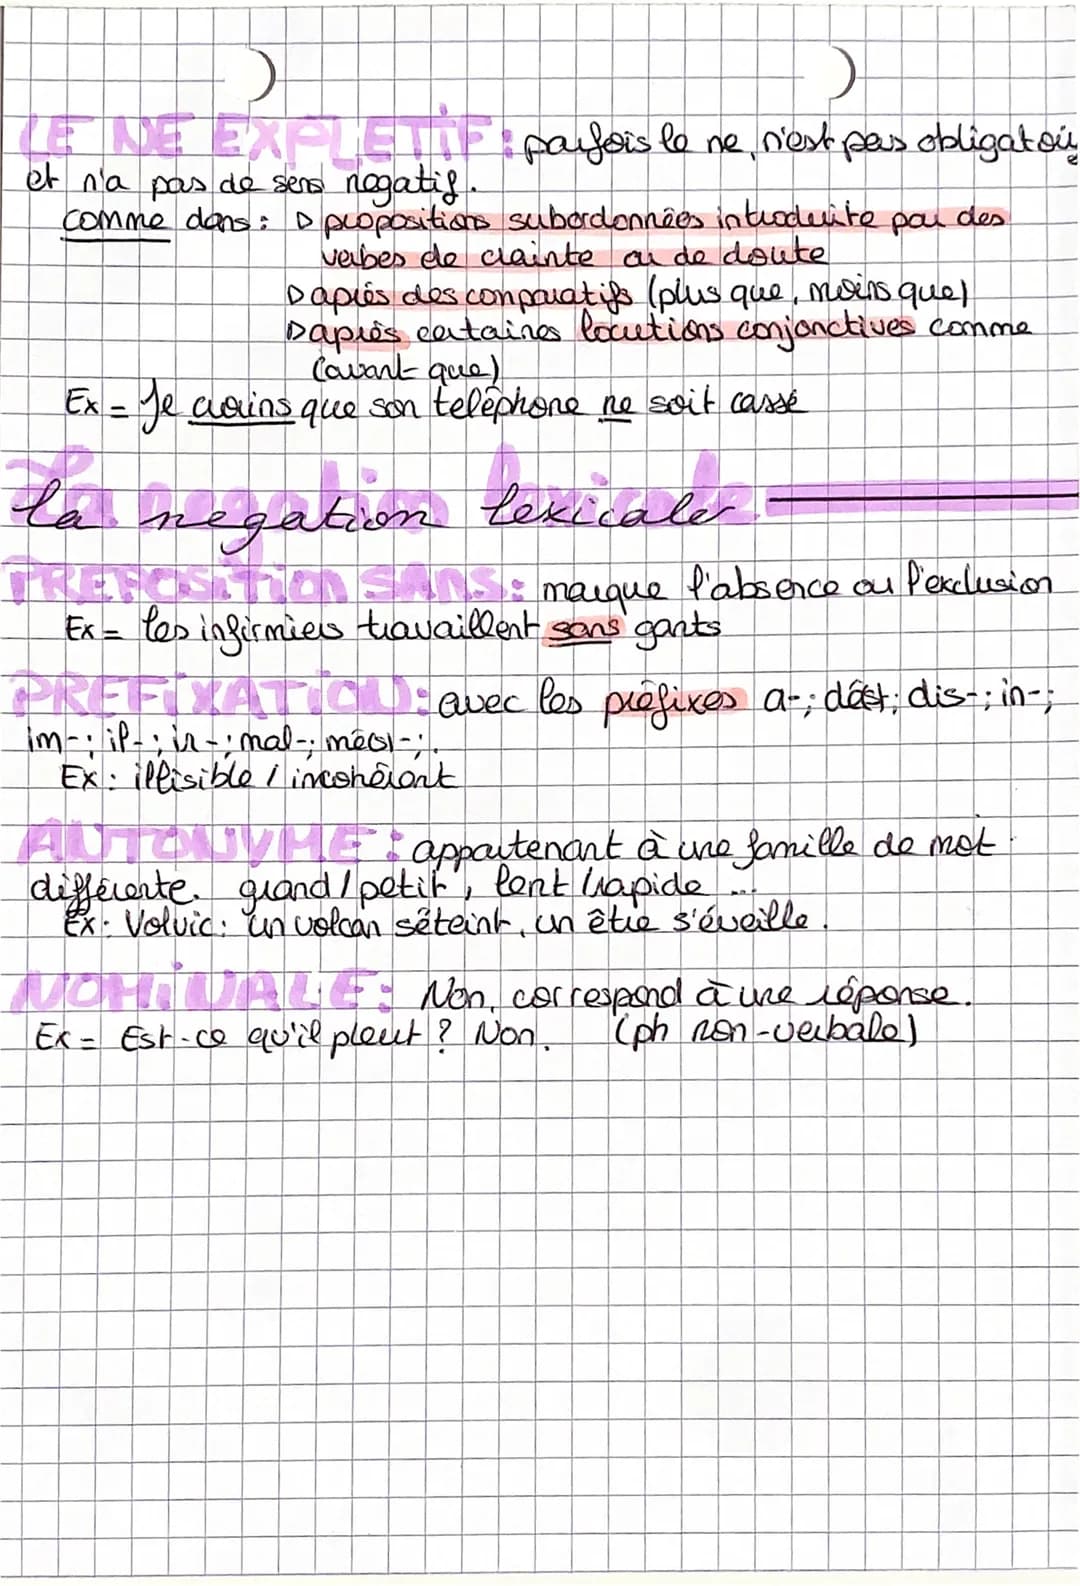 LE NE EXPLETIF : parfois le ne, n'est pas obligatoir
et n'a pas de sens negatif.
comme dans : ▷ propositions subordonnées introduite par des
verbes de crainte ou de doute
▷ après des comparatifs (plus que, moins que)
▷ après certaines locutions conjonctives comme
(avant que)
Ex = Je crains que son telephone ne soit cassé
la negation lexicale
PREPOSITION SANS : marque l'absence ou l'exclusion
Ex = les infirmiers travaillent sans gants
PREFIXATION : avec les préfixes a- ; dé(s)- ; dis- ; in- ;
im- ; il- ; ir- ; mal- ; mé(s)- ;
Ex : illisible / incohérent
ANTONYME : appartenant à une famille de mot
différente. grand / petit, lent / rapide ...
Ex : Volvic : un volcan s'éteint, un être s'éveille.
NOMINALE : Non, correspond à une réponse.
Ex = Est-ce qu'il pleut ? Non. (ph non-verbale)